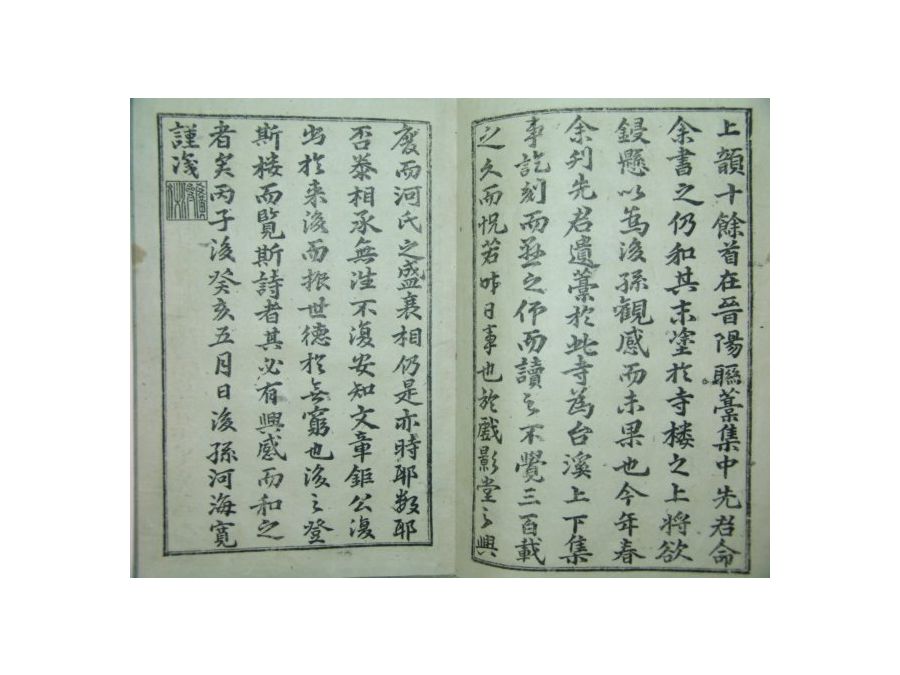 上韻十餘首在晉陽聯藁集中先君命
余書之仍和其末塗於寺楼之上将欲
鋟懸以為後孫觀感而未果也今年春
余刋先君遺藁於此寺為台溪上下集
事訖刻而懸之仰而讀之不覺三百載
之久而怳若昨日事也於戲影堂之興
廢而河氏之盛衰相仍是亦時耶数耶
否泰相承無往不復安知文章鉅公復
出於来後而振世德於無窮也後之登
斯楼而覧斯詩者其必有興感而和之
者矣丙子後癸亥五月日後孫河海寛
謹識